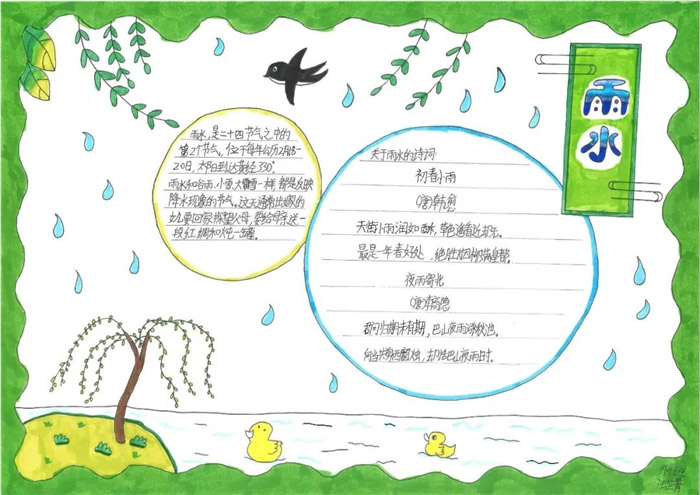 雨水
雨水,是二十四节气之中的
第2个节气。位于每年公历2月18-
20日,太阳到达黄经330°。
雨水和谷雨、小雪、大雪一样,都是反映
降水现象的节气。这天通常出嫁的
女儿要回家探望父母,要给母亲送一
段红绸和炖一罐。
关于雨水的诗词
初春小雨
(唐)韩愈
天街小雨润如酥,草色遥看近却无。
最是一年春好处,绝胜烟柳满皇都。
夜雨寄北
(唐)
君问归期未有期,巴山夜雨涨秋池。
何当共剪西窗烛,却话巴山夜雨时。